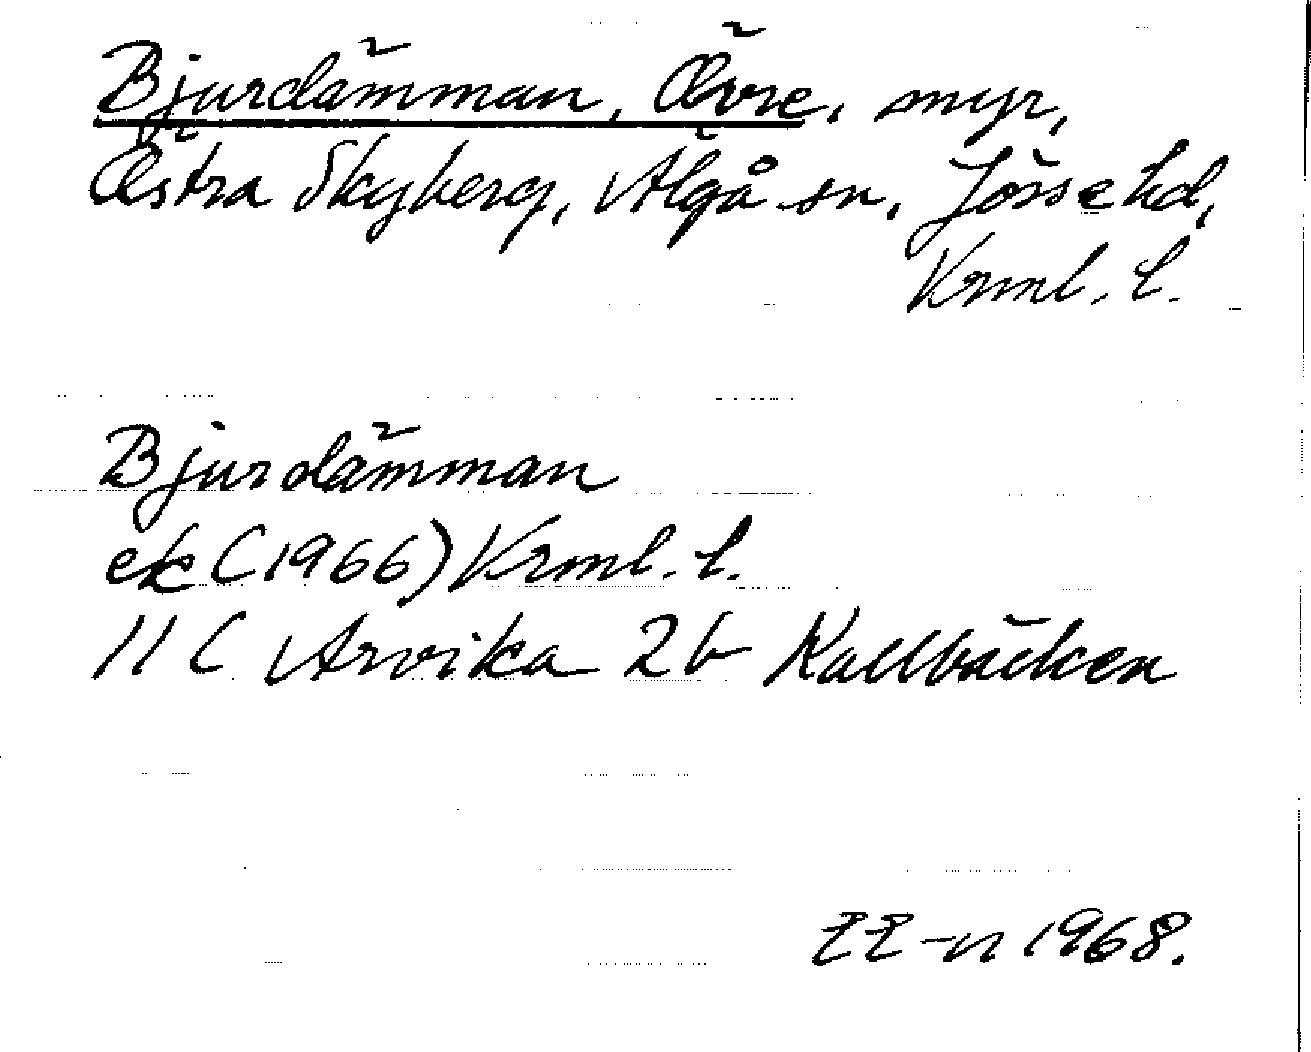 Bjurdämman, Övre, myr,
Östra Skyberg, Älgå sn, Jösse hd,
Vrml. l.
Bjurdämman
ek (1966) Vrml. l.
11 C Arvika 2b Kallbäcken
EE-n 1968.